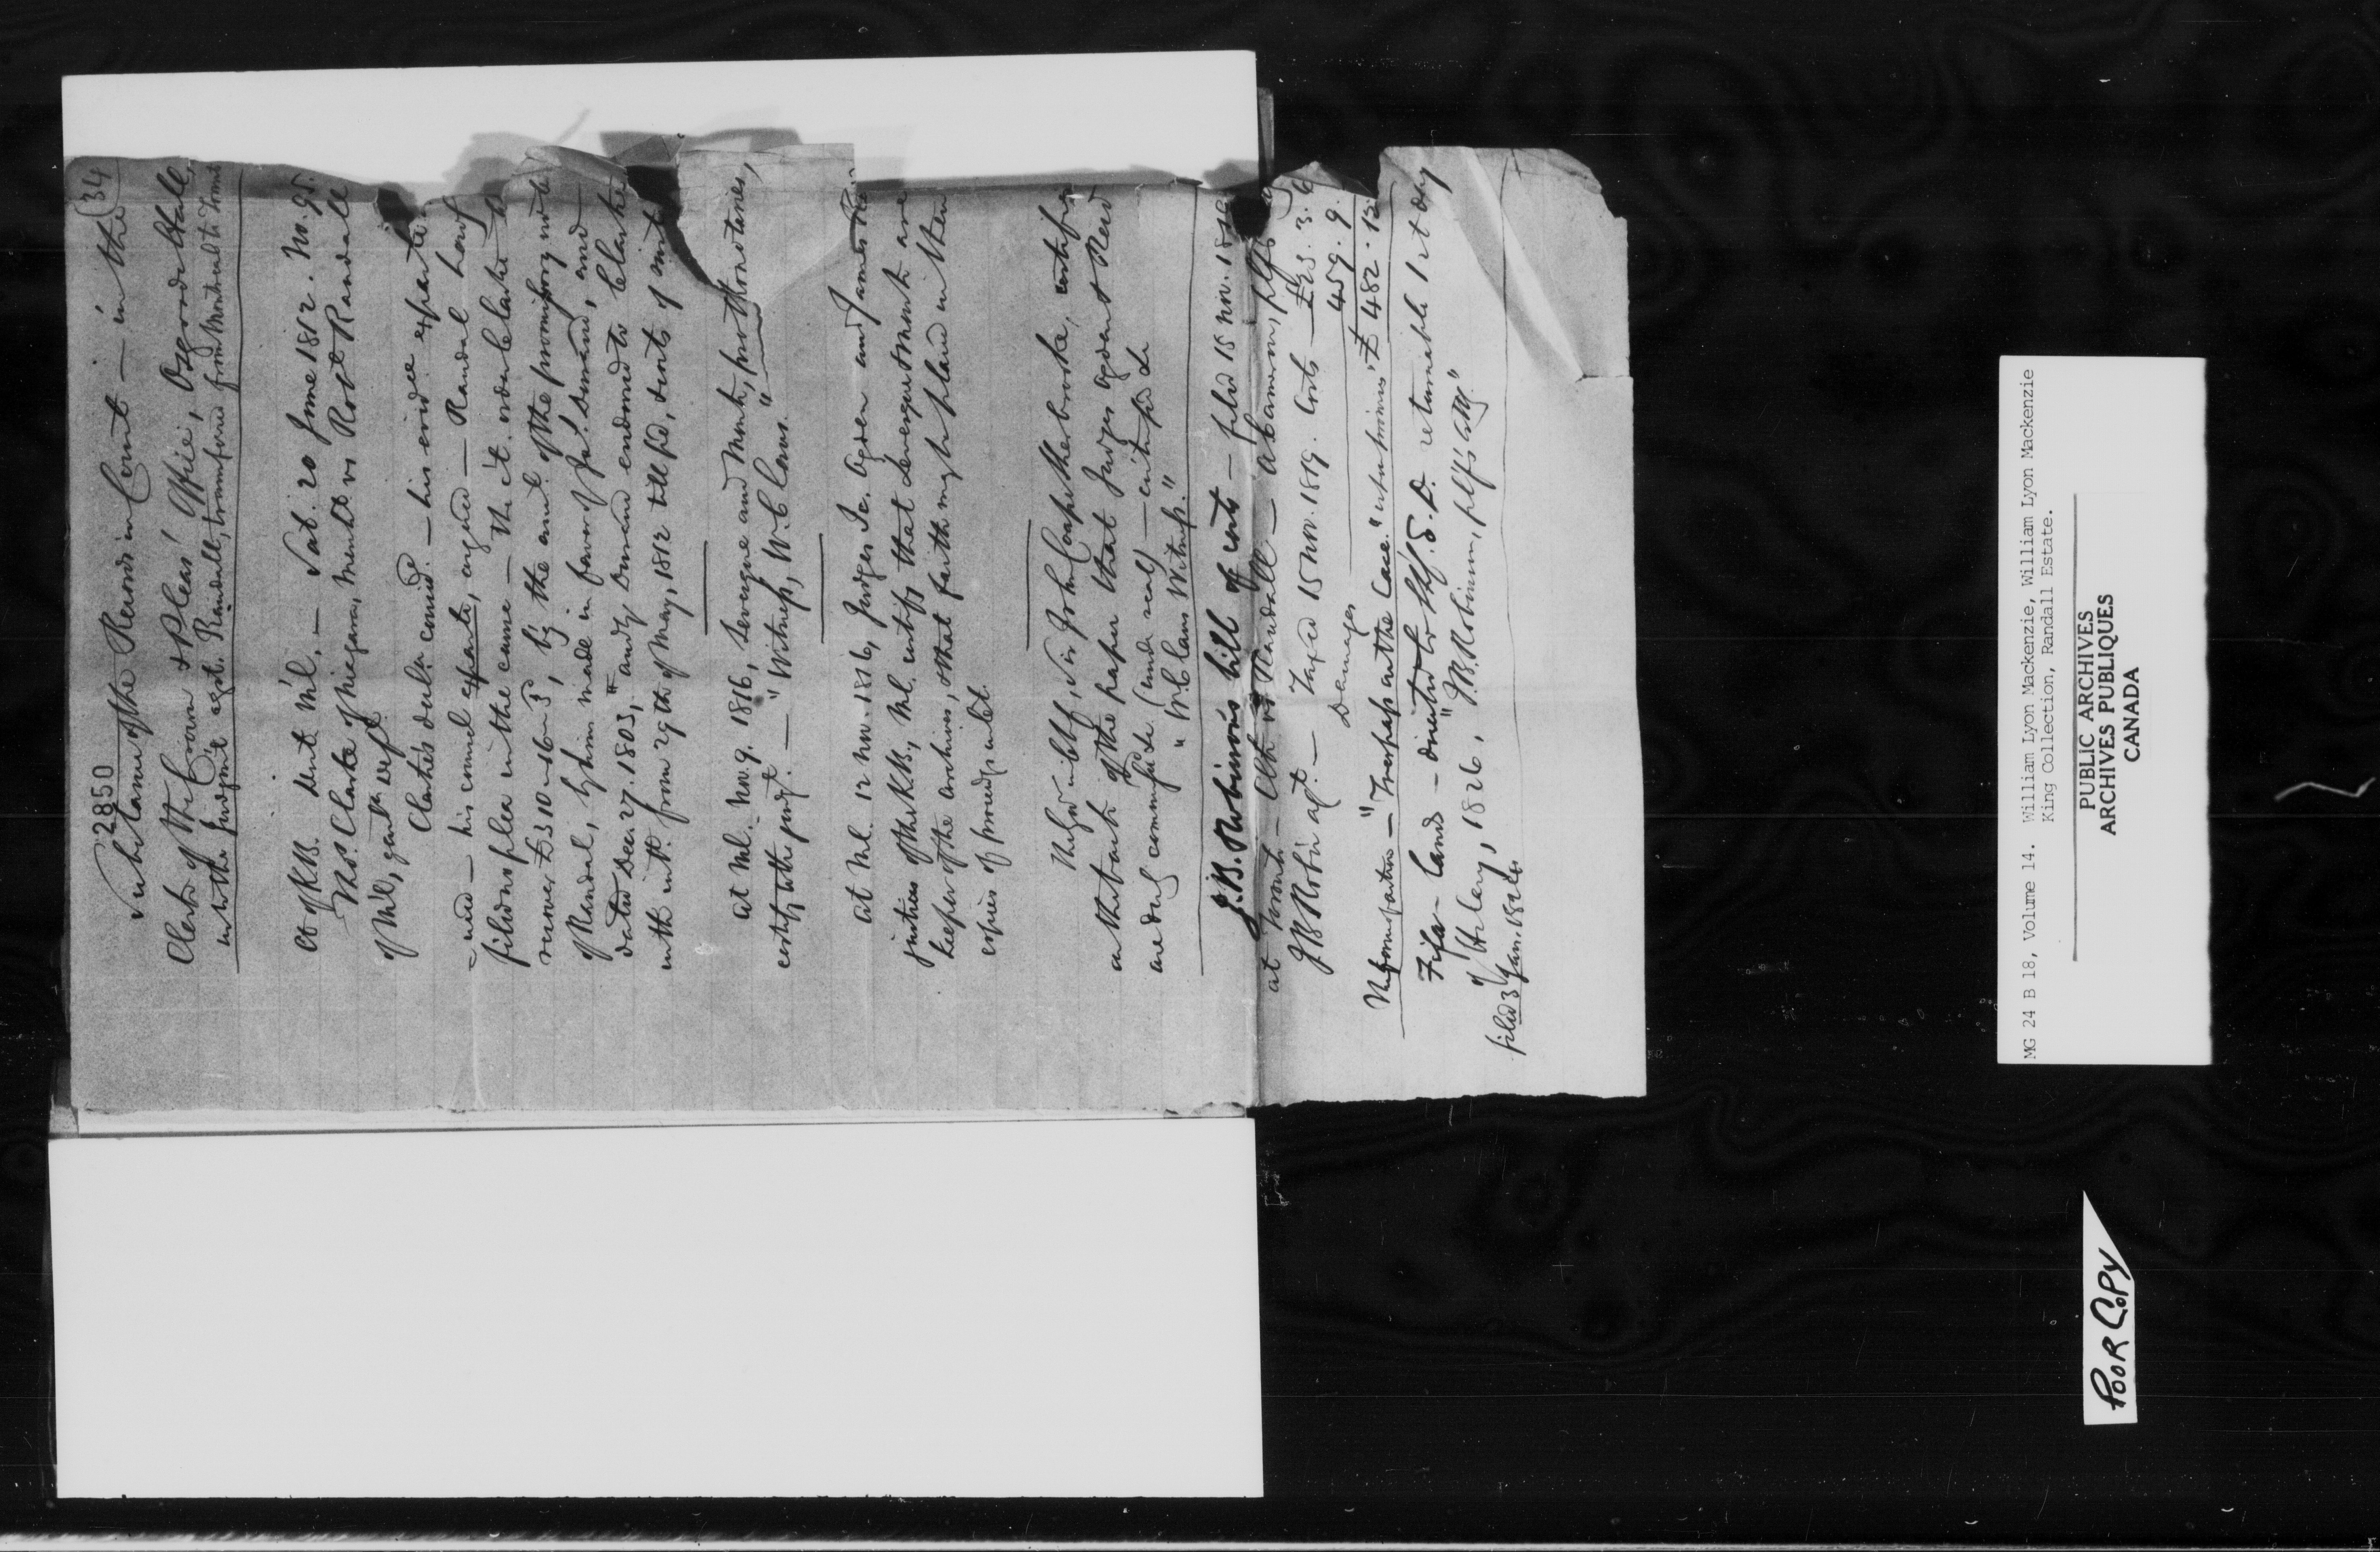 2850
34
Substance of the Records in Court — in the
Clerk of the Crown & Pleas' Office, Osgoode Hall,
in the Judgm't agst. Randall, transferred from Montreal to Toronto
Ct of KB. Distt. M'l. — Sat. 20 June 1812. No. 95.
Thos. Clarke of Niagara, Mercht vs Robt Randall
of M'l, gentn Deft.
Clarke's decln consid. — his evidce exparte
— his counsel exparte, argued — Randal having
filed no plea in the cause — The Ct. orders Clarke to
recover by the amt. of the promissory note
of Randal, by him made in favor of Jas. Durand, and
dated Dec 27. 1803, and by Durand endorsed to Clarke
with intt. from 29th of May, 1812 till pd, & costs of suit
at Ml. Nov. 9. 1816, Levesque and Monk, prothonotaries,
certify to the judgt. — "Witness, W. C laus."
At Ml. 12 Nov. 1816, Judges Is. Ogden and James Reid
justices of the KB, Ml. certify that Levesque & Monk are
keepers of the archives, & that faith must be placed in their
copies of proceedgs in let.
His sign. John Coape Sherbrooke, certifies
on the back of the paper that Judges Ogden & Reid
are duly commiss'd &c (under seal) — entitled &c
"W. Claus Witness."
J. B. Robinson's bill of costs — filed 15 Nov. 1819
at Toronto — Clk vs Randall — A Cameron, plfs
J B Robin agt. — Taxed 15 Nov. 1819. Costs — £23. 3. 6
Damages 459. 9.
"Trespass on the Case." £ 482. 12.
Fifa — Lands — directed to Shff. N. D. returnable 1st day
of Hilary, 1826, "J. B. Robinson, plff's atty."
filed 3 Jan. 1826
MG 24 B 18, Volume 14. William Lyon Mackenzie, William Lyon Mackenzie
King Collection, Randall Estate.
PUBLIC ARCHIVES
ARCHIVES PUBLIQUES
CANADA
POOR COPY